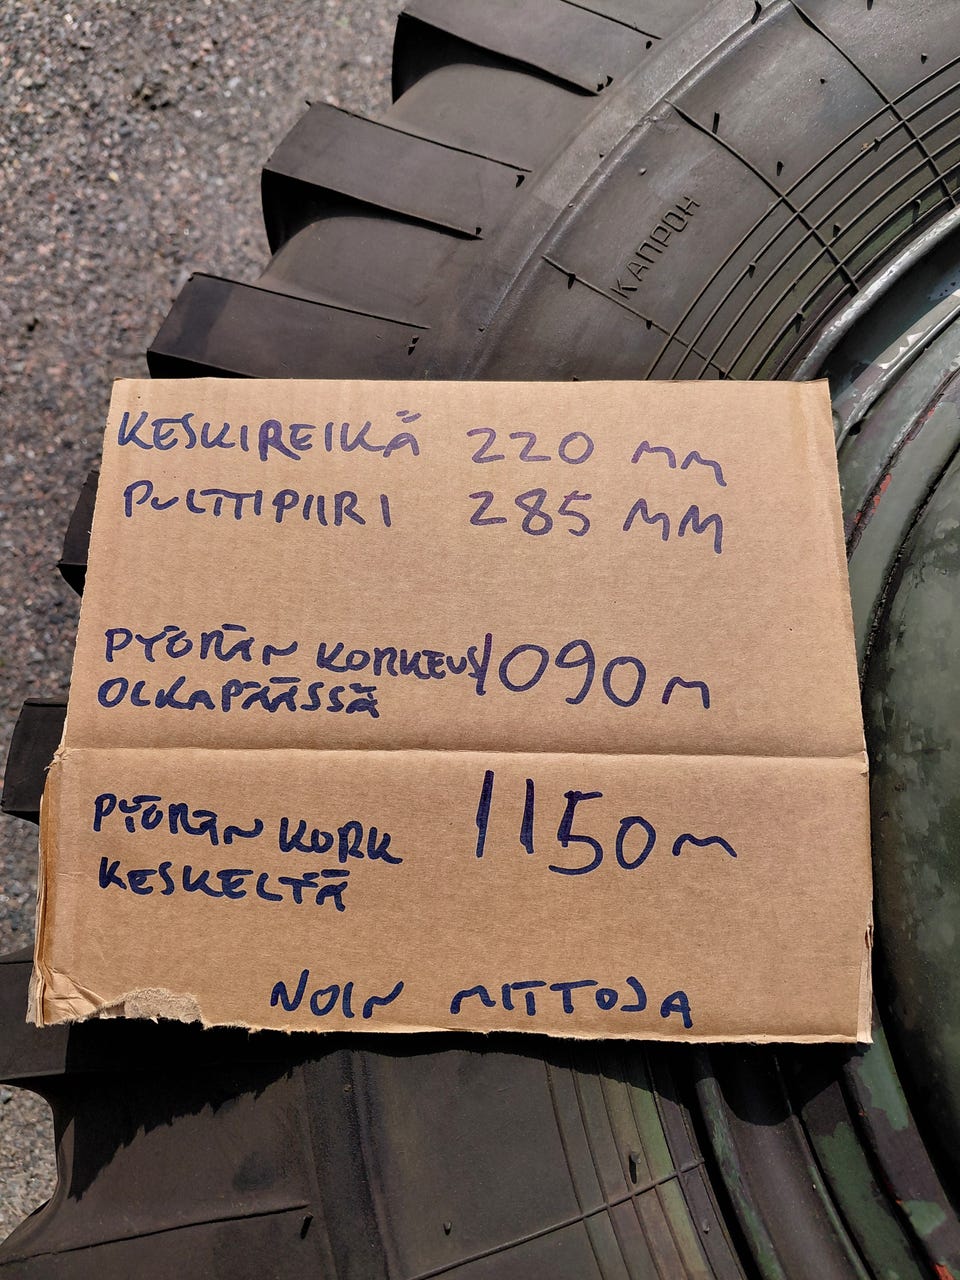 КАПРОН
KESKIREIKÄ 220 mm
PULTTIPIIRI 285 MM
PYÖRÄN KORKEUS 1090 m
OLKAPÄÄSSÄ
PYÖRÄN KORK 1150 m
KESKELTÄ
NOIN MITTOJA